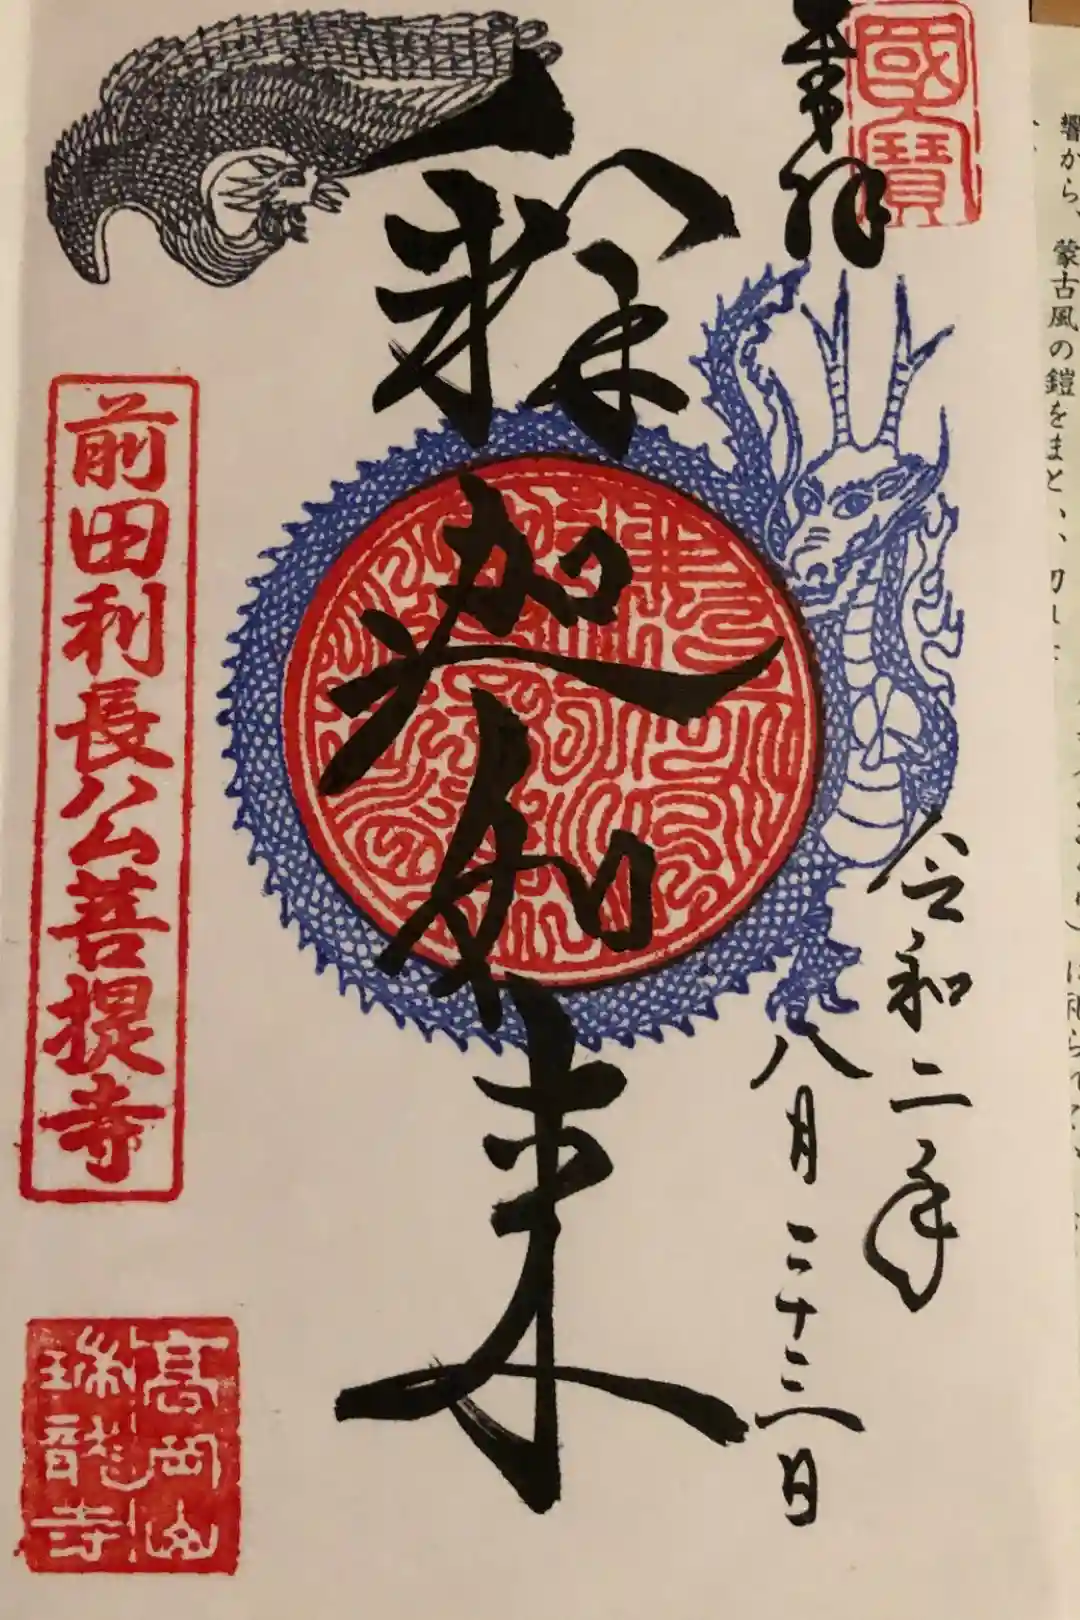 國寶
奉拝
令和二年
八月二十三日
釈迦如来
前田利長公菩提寺
高岡山
瑞龍寺
響から、蒙古風の鎧をまとい、切れ